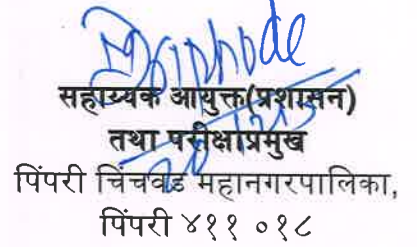 सहाय्यक आयुक्त(प्रशासन)
तथा परीक्षाप्रमुख
पिंपरी चिंचवड महानगरपालिका,
पिंपरी ४११ ०१८